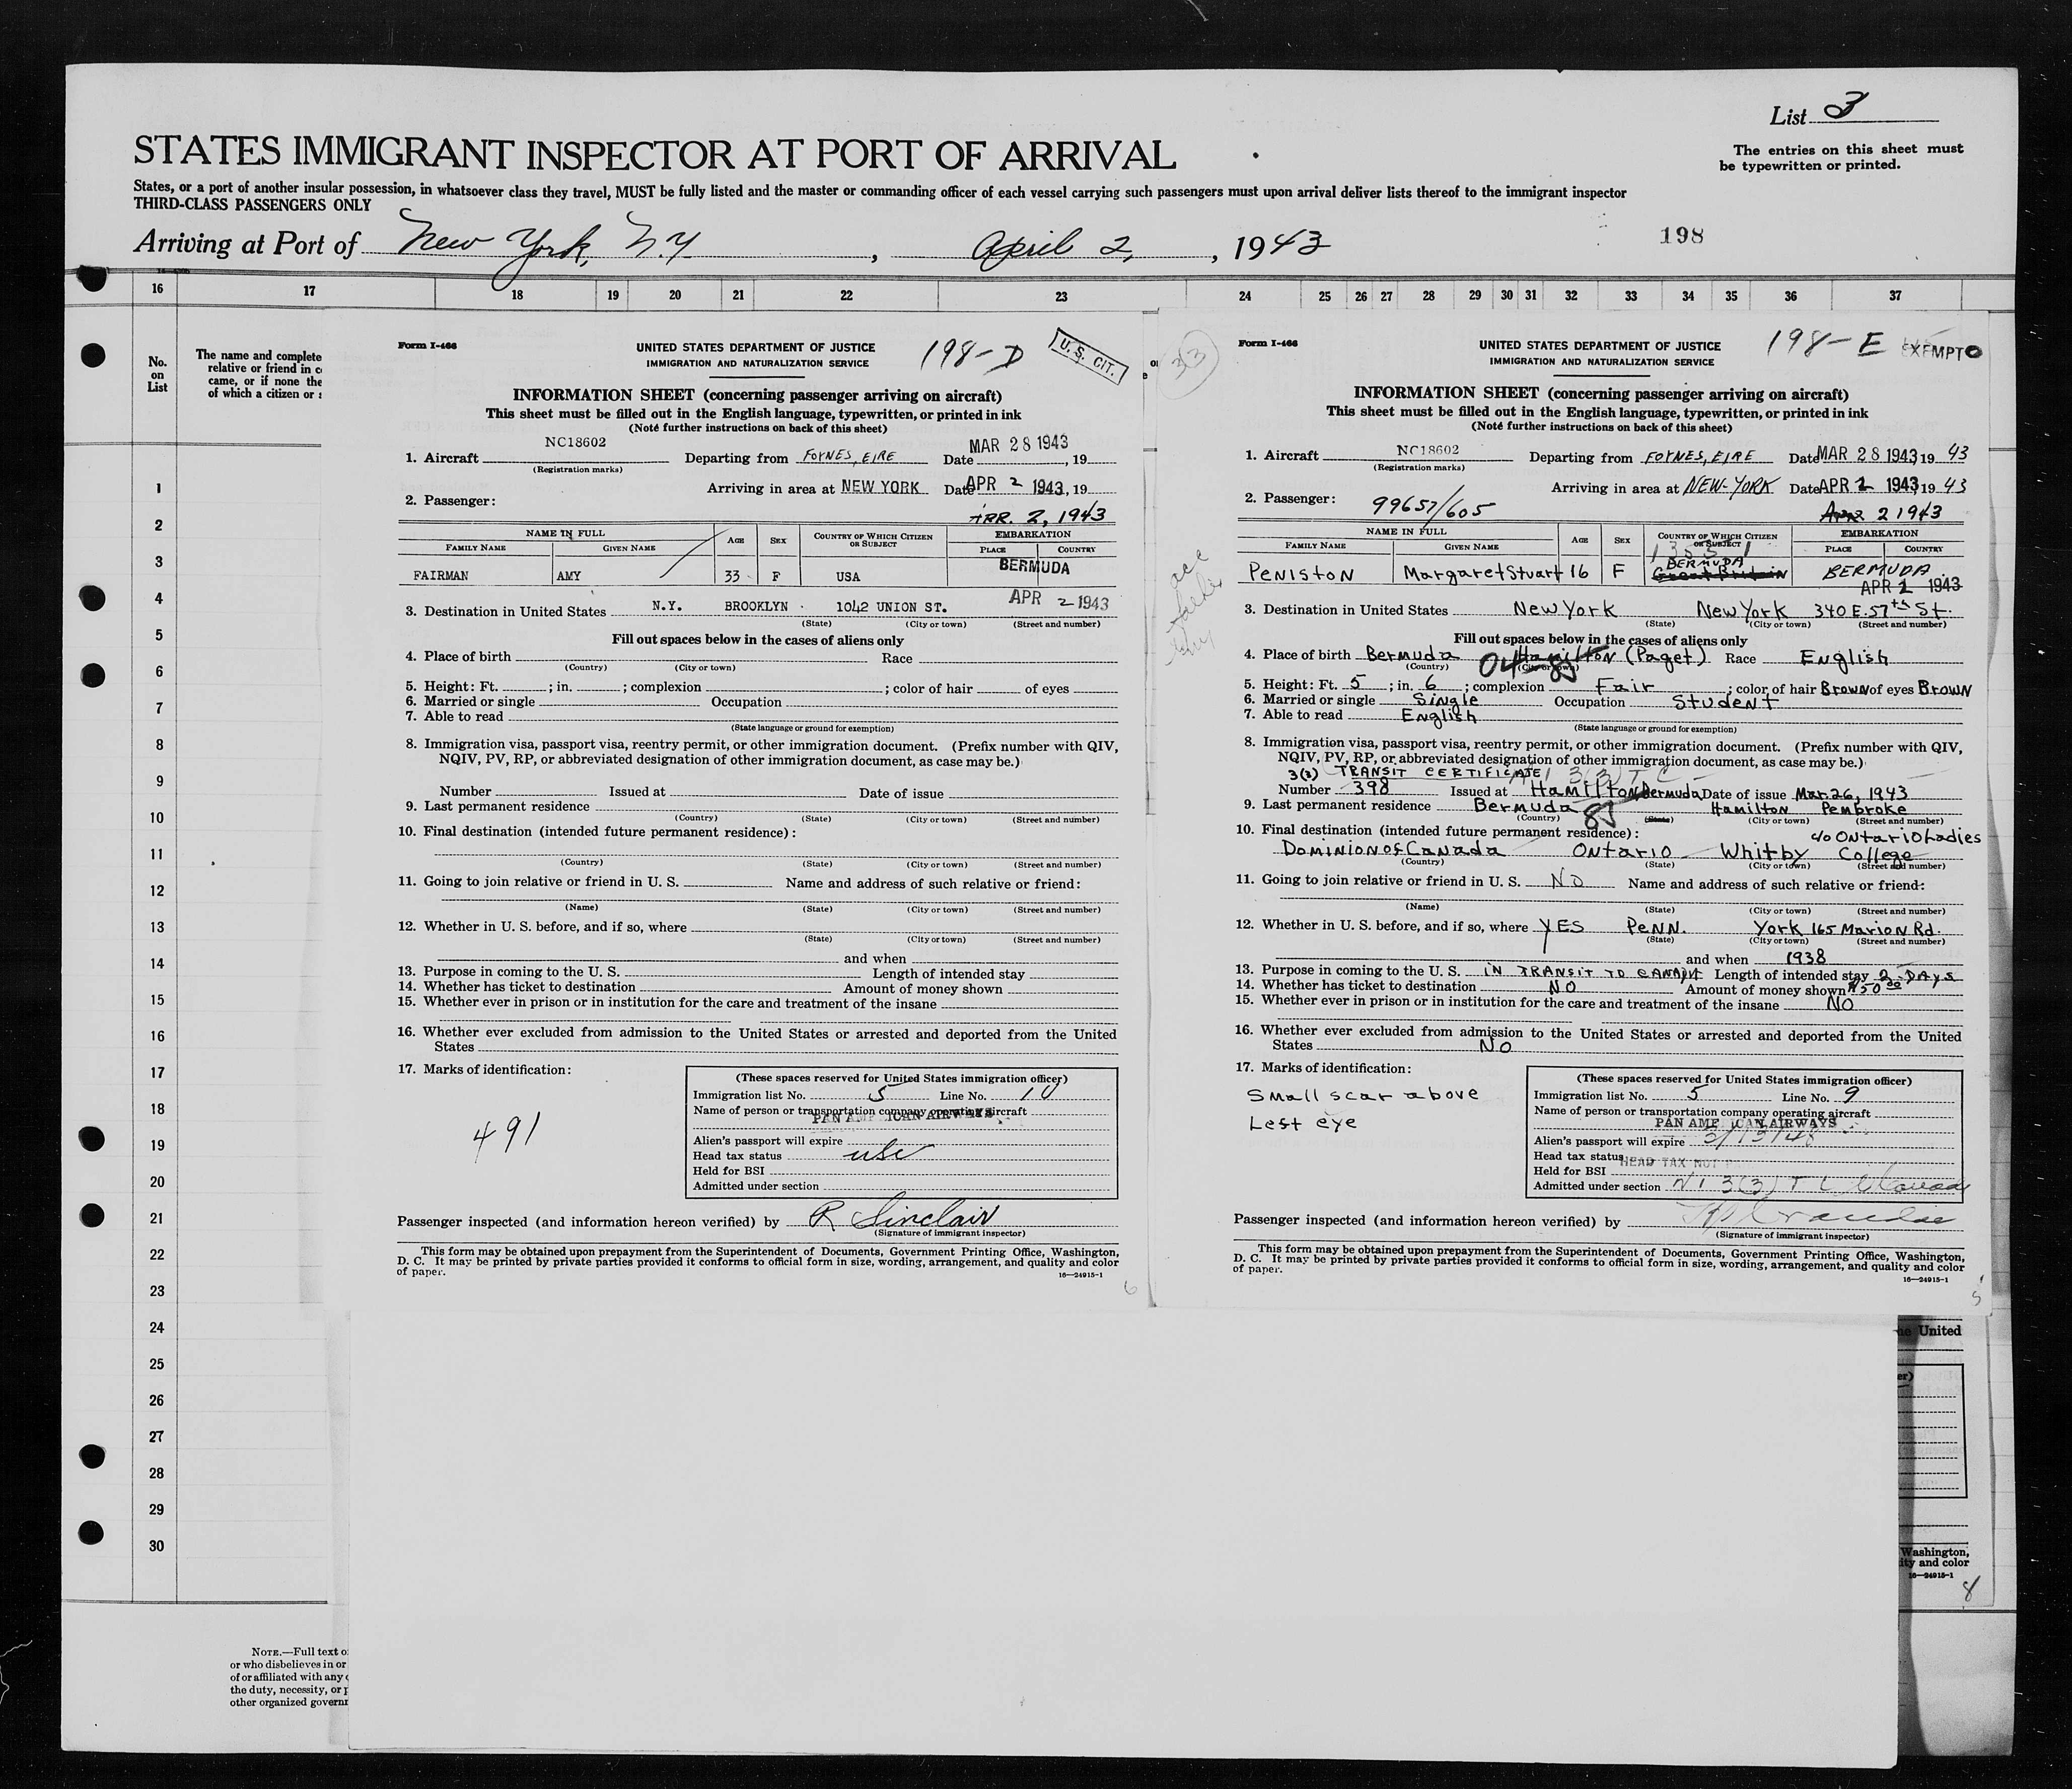 List 3
STATES IMMIGRANT INSPECTOR AT PORT OF ARRIVAL
The entries on this sheet must
be typewritten or printed.
States, or a port of another insular possession, in whatsoever class they travel, MUST be fully listed and the master or commanding officer of each vessel carrying such passengers must upon arrival deliver lists thereof to the immigrant inspector
THIRD-CLASS PASSENGERS ONLY
Arriving at Port of New York, N.Y, April 2, 1943
198
16 17 18 19 20 21 22 23 24 25 26 27 28 29 30 31 32 33 34 35 36 37
No.
on
List
The name and complete
relative or friend in c
came, or if none the
of which a citizen or s
1
2
3
4
5
6
7
8
9
10
11
12
13
14
15
16
17
18
19
20
21
22
23
24
25
26
27
28
29
30
NOTE.—Full text o
or who disbelieves in or
of or affiliated with any o
the duty, necessity, or p
other organized governm
Form I-466
UNITED STATES DEPARTMENT OF JUSTICE
IMMIGRATION AND NATURALIZATION SERVICE
198-D
U. S. CIT.
INFORMATION SHEET (concerning passenger arriving on aircraft)
This sheet must be filled out in the English language, typewritten, or printed in ink
(Note further instructions on back of this sheet)
1. Aircraft NC18602 Departing from FOYNES, EIRE Date MAR 28 1943, 19
(Registration marks)
Arriving in area at NEW YORK Date APR 2 1943, 19
2. Passenger:
APR. 2, 1943
NAME IN FULL AGE SEX COUNTRY OF WHICH CITIZEN OR SUBJECT EMBARKATION
FAMILY NAME GIVEN NAME PLACE COUNTRY
FAIRMAN AMY 33 F USA BERMUDA
APR 2 1943
3. Destination in United States N.Y. BROOKLYN 1042 UNION ST.
(State) (City or town) (Street and number)
Fill out spaces below in the cases of aliens only
4. Place of birth Race
(Country) (City or town)
5. Height: Ft. ; in. ; complexion ; color of hair of eyes
6. Married or single Occupation
7. Able to read
(State language or ground for exemption)
8. Immigration visa, passport visa, reentry permit, or other immigration document. (Prefix number with QIV,
NQIV, PV, RP, or abbreviated designation of other immigration document, as case may be.)
Number Issued at Date of issue
9. Last permanent residence
(Country) (State) (City or town) (Street and number)
10. Final destination (intended future permanent residence):
(Country) (State) (City or town) (Street and number)
11. Going to join relative or friend in U. S. Name and address of such relative or friend:
(Name) (State) (City or town) (Street and number)
12. Whether in U. S. before, and if so, where
(State) (City or town) (Street and number)
and when
13. Purpose in coming to the U. S. Length of intended stay
14. Whether has ticket to destination Amount of money shown
15. Whether ever in prison or in institution for the care and treatment of the insane
16. Whether ever excluded from admission to the United States or arrested and deported from the United
States
17. Marks of identification:
491
(These spaces reserved for United States immigration officer)
Immigration list No. 5 Line No. 10
Name of person or transportation company operating aircraft
PAN AMERICAN AIRWAYS
Alien's passport will expire
Head tax status usc
Held for BSI
Admitted under section
Passenger inspected (and information hereon verified) by R Sinclair
(Signature of immigrant inspector)
This form may be obtained upon prepayment from the Superintendent of Documents, Government Printing Office, Washington,
D. C. It may be printed by private parties provided it conforms to official form in size, wording, arrangement, and quality and color
of paper.
16—24915-1
6
33
Form I-466
UNITED STATES DEPARTMENT OF JUSTICE
IMMIGRATION AND NATURALIZATION SERVICE
198-E
EXEMPT
INFORMATION SHEET (concerning passenger arriving on aircraft)
This sheet must be filled out in the English language, typewritten, or printed in ink
(Note further instructions on back of this sheet)
1. Aircraft NC18602 Departing from FOYNES, EIRE Date MAR 28 1943, 19 43
(Registration marks)
Arriving in area at NEW-YORK Date APR 2 1943, 19 43
2. Passenger: 99657/605
Apr 2 1943
NAME IN FULL AGE SEX COUNTRY OF WHICH CITIZEN OR SUBJECT EMBARKATION
FAMILY NAME GIVEN NAME PLACE COUNTRY
PENISTON Margaret Stuart 16 F Great Britain BERMUDA BERMUDA
APR 2 1943
3. Destination in United States New York New York 340 E. 57th St.
(State) (City or town) (Street and number)
Fill out spaces below in the cases of aliens only
4. Place of birth Bermuda Hamilton (Paget) Race English
(Country) (City or town)
5. Height: Ft. 5 ; in. 6 ; complexion Fair ; color of hair Brown of eyes Brown
6. Married or single Single Occupation Student
7. Able to read English
(State language or ground for exemption)
8. Immigration visa, passport visa, reentry permit, or other immigration document. (Prefix number with QIV,
NQIV, PV, RP, or abbreviated designation of other immigration document, as case may be.)
3(3) TRANSIT CERTIFICATE
Number 398 Issued at Hamilton Bermuda Date of issue Mar. 26, 1943
9. Last permanent residence Bermuda 85 Hamilton Pembroke
(Country) (State) (City or town) (Street and number)
10. Final destination (intended future permanent residence):
c/o Ontario Ladies
Dominion of Canada Ontario Whitby College
(Country) (State) (City or town) (Street and number)
11. Going to join relative or friend in U. S. No Name and address of such relative or friend:
(Name) (State) (City or town) (Street and number)
12. Whether in U. S. before, and if so, where YES PENN. York 165 Marion Rd.
(State) (City or town) (Street and number)
and when 1938
13. Purpose in coming to the U. S. IN TRANSIT TO CANADA Length of intended stay 2-DAYS
14. Whether has ticket to destination NO Amount of money shown $50.00
15. Whether ever in prison or in institution for the care and treatment of the insane NO
16. Whether ever excluded from admission to the United States or arrested and deported from the United
States NO
17. Marks of identification:
Small scar above
Left eye
(These spaces reserved for United States immigration officer)
Immigration list No. 5 Line No. 9
Name of person or transportation company operating aircraft
PAN AMERICAN AIRWAYS
Alien's passport will expire 3/13/48
Head tax status HEAD TAX NOT
Held for BSI
Admitted under section 3(3) T C
Passenger inspected (and information hereon verified) by
(Signature of immigrant inspector)
This form may be obtained upon prepayment from the Superintendent of Documents, Government Printing Office, Washington,
D. C. It may be printed by private parties provided it conforms to official form in size, wording, arrangement, and quality and color
of paper.
16—24915-1
5
he United
er)
Washington,
ity and color
16—24915-1
8